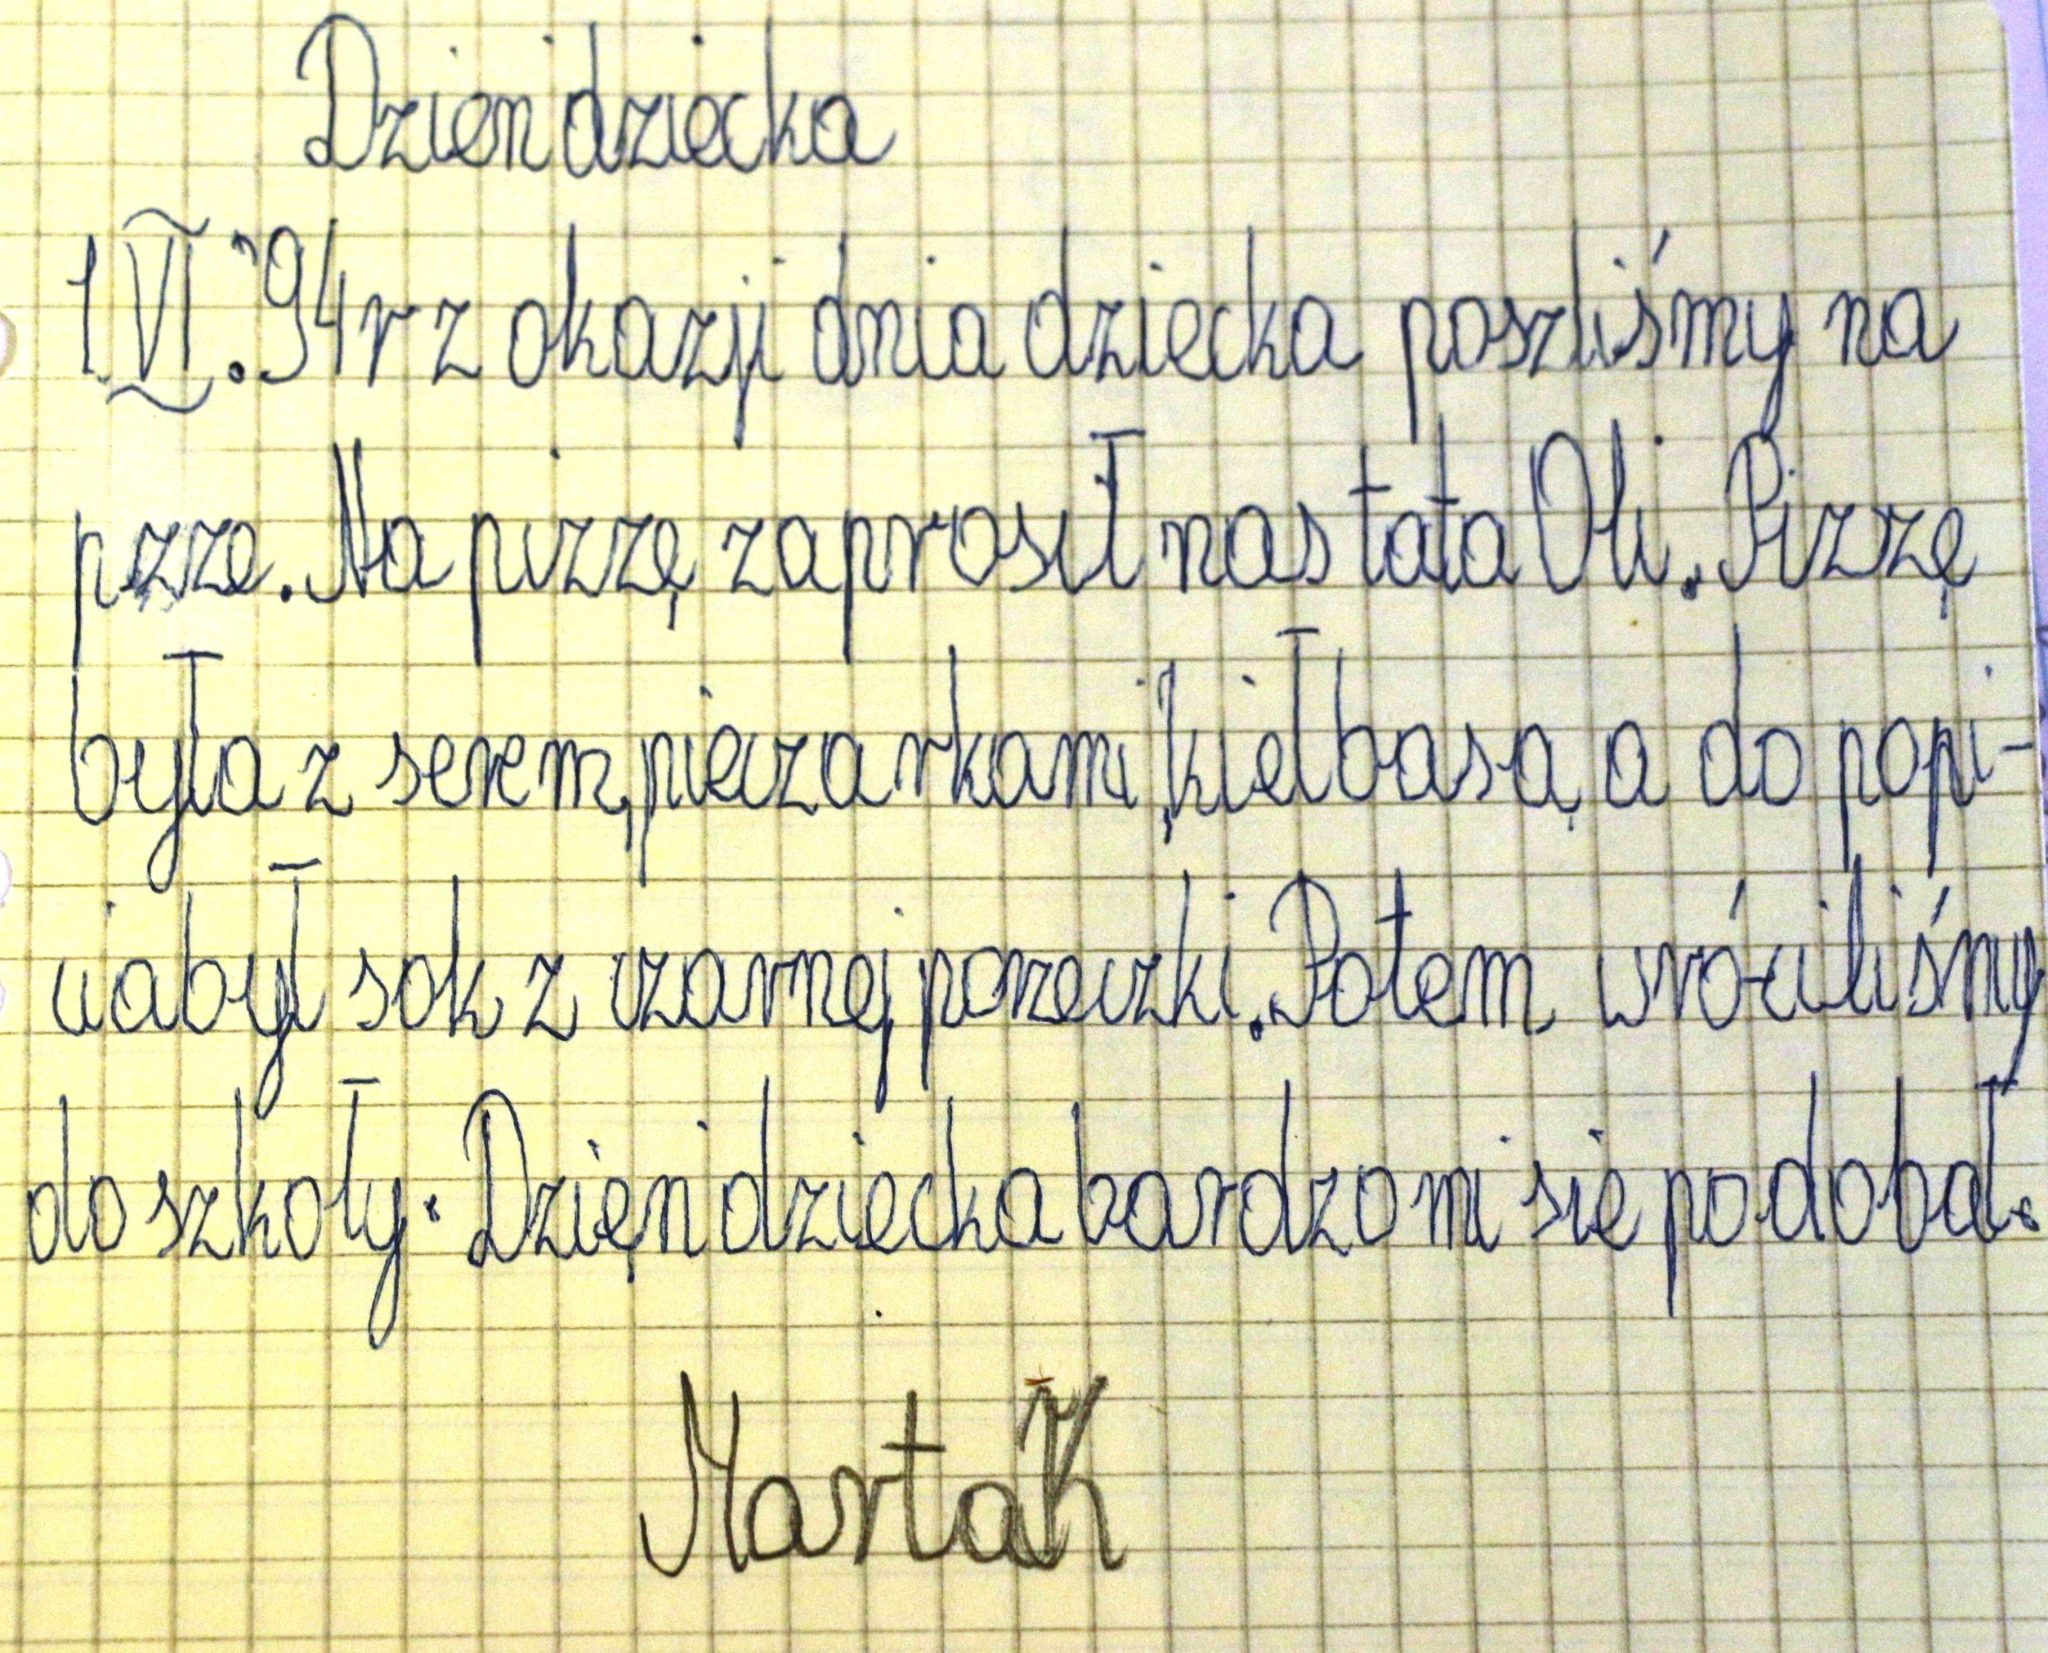 Dzien dziecka
1 VI. 94 r z okazji dnia dziecka poszliśmy na
pizze. Na pizzę zaprosił nas tata Oli. Pizzę
była z serem, pieczarkami, kiełbasą, a do popi-
cia był sok z czarnej porzeczki. Potem wróciliśmy
do szkoły. Dzięn dziecka bardzo mi sie podobał.
Marta K